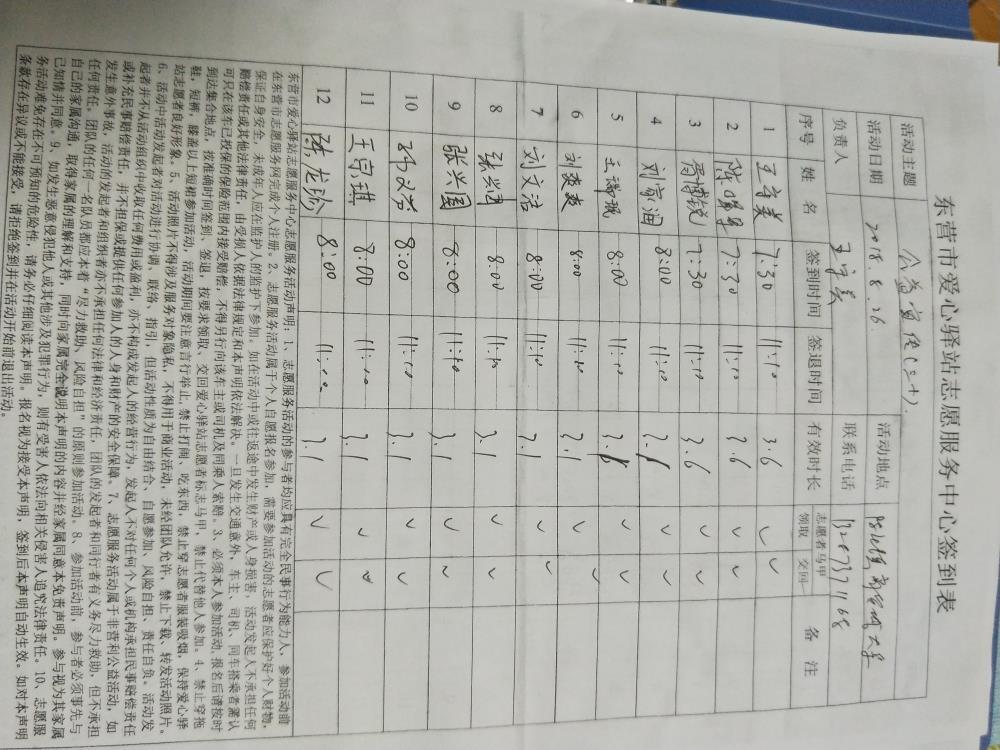 东营市爱心驿站志愿服务中心签到表
活动主题 公益宣传(三十). 活动地点
活动日期 2018.8.26 联系电话
负责人 王守美
序号 姓名 签到时间 签退时间 有效时长 志愿者马甲 领取 交回 备注
1 王守美 7:30 11:10 3.6 ✓ ✓
2 7:30 11:10 3.6 ✓ ✓
3 7:30 11:10 3.6 ✓ ✓
4 刘家润 8:00 11:10 3.1 ✓ ✓
5 8:00 11:10 3.1 ✓ ✓
6 刘爽爽 8:00 11:10 3.1 ✓ ✓
7 刘文洁 8:00 11:10 3.1 ✓ ✓
8 张兴国 8:00 11:10 3.1 ✓ ✓
9 张兴国 8:00 11:10 3.1 ✓ ✓
10 8:00 11:10 3.1 ✓ ✓
11 王宗琪 8:00 11:10 3.1 ✓ ✓
12 陈龙珍 8:00 11:10 3.1 ✓ ✓
东营市爱心驿站志愿服务中心志愿服务活动声明：1、志愿服务活动的参与者均应具有完全民事行为能力人，参加活动前
在东营市志愿服务网完成个人注册。2、志愿服务活动属于个人自愿报名参加，需要参加活动的志愿者应保护好个人财物，
保证自身安全，未成年人应在监护人的监护下参加。如在活动中或往返途中发生财产或人身损害，活动发起人不承担任何
赔偿责任或其他法律责任，由受损人依据法律规定和本声明依法解决。一旦发生交通意外，车主、司机、同车搭乘者需认
可只在该车已投保的保险范围内接受赔偿，不得另行向该车主或司机及同乘人索赔。3、必须本人参加活动，报名后请按时
到达集合地点，按准确时间签到、签退，按要求领取、交回爱心驿站志愿者标志马甲，禁止代替他人参加。4、禁止穿拖
鞋，短裤，膝盖以上短裙参加活动，活动期间要注意言行举止，禁止打闹、吃东西，禁止穿志愿者服装吸烟，保持爱心驿
站志愿者良好形象。5、活动照片不得涉及服务对象隐私，不得用于商业活动，未经团队允许，禁止下载、转发活动照片。
6、活动中活动发起者对活动进行协调、联络、指引，但活动性质为自由结合、自愿参加、风险自担、责任自负。活动发
起者并不从活动组织中收取任何费用或盈利，亦不构成发起人的经营行为，发起人不对任何个人或机构承担民事赔偿责任
或补充民事赔偿责任，并不担保或提供任何参加人的人身和财产的安全保障。7、志愿服务活动属于非营利公益活动，如
发生意外事故，活动的发起者和组织者亦不承担任何法律和经济责任，团队的发起者和同行者有义务尽力救助，但不承担
任何责任。团队的任何一名队员都应本着“尽力救助、风险自担”的原则参加活动。8、参加活动前，参与者必须事先与
自己的家属沟通，取得家属的理解和支持，同时向家属完全说明本声明的内容并经家属同意本免责声明。参与视为其家属
已知情并同意。9、如发生恶意侵犯他人或其他涉及犯罪行为，则有受害人依法向相关侵害人追究法律责任。10、志愿服
务活动难免存在不可预知的危险性，请务必仔细阅读本声明。报名视为接受本声明，签到后本声明自动生效。如对本声明
条款存在异议或不能接受，请拒绝签到并在活动开始前退出活动。